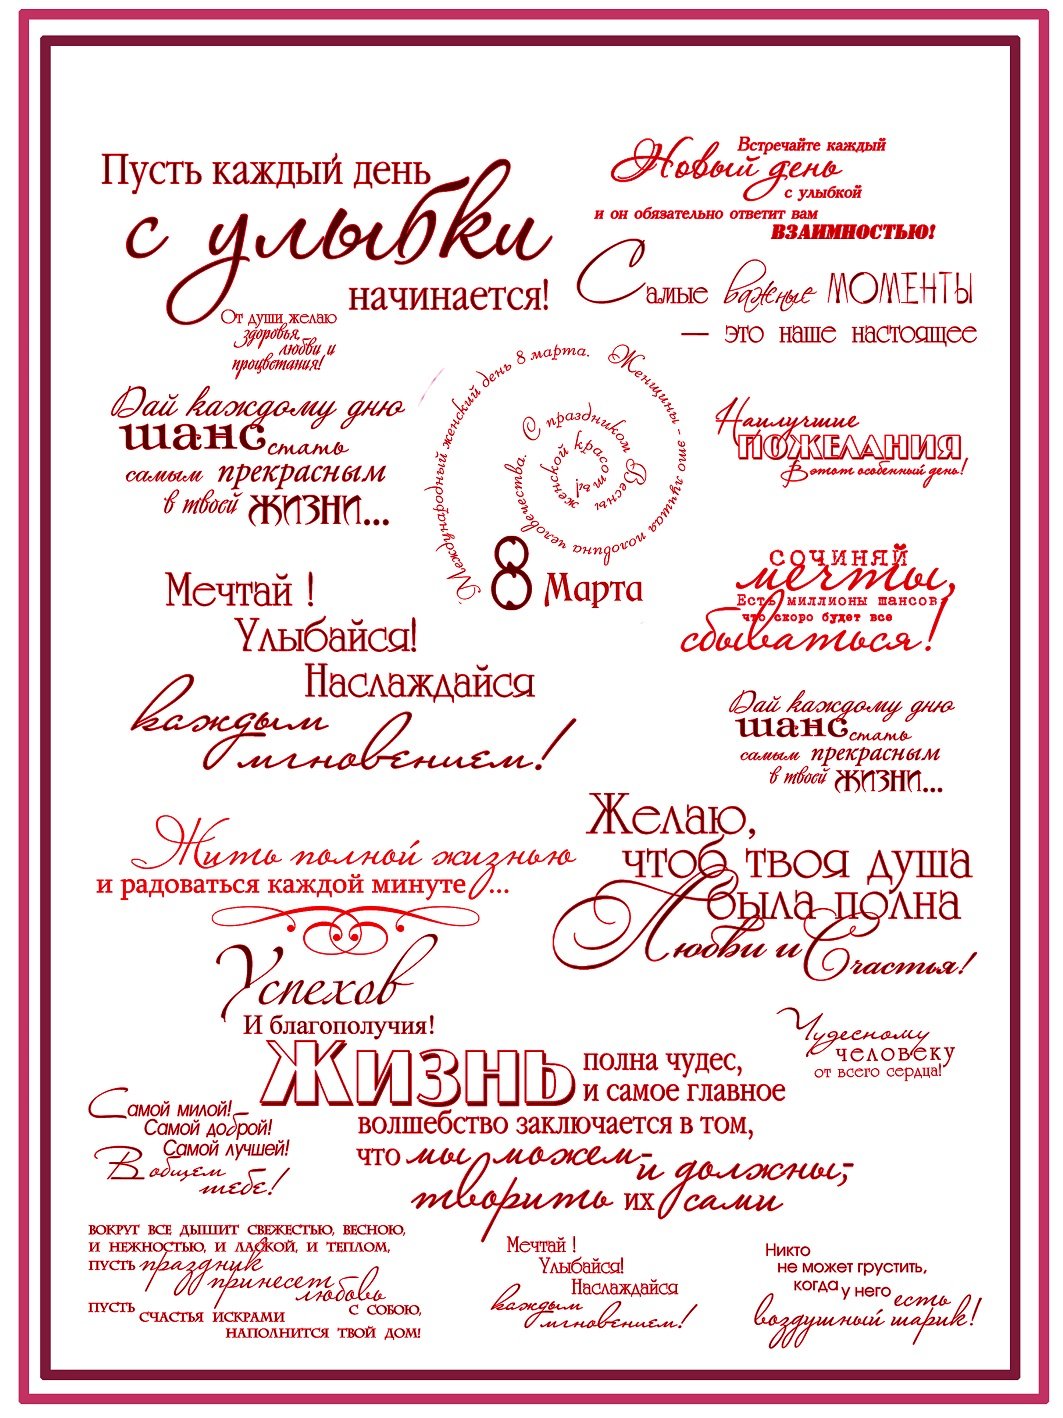 Пусть каждый день
с улыбки
начинается!
Встречайте каждый
Новый день
с улыбкой
и он обязательно ответит вам
ВЗАИМНОСТЬЮ!
Самые важные МОМЕНТЫ
— это наше настоящее
От души желаю
здоровья,
любви и
процветания!
Дай каждому дню
шанс стать
самым прекрасным
в твоей ЖИЗНИ...
Международный женский день 8 марта. Женщины - это лучшая половина человечества. С праздником Весны женской красоты
8 Марта
Наилучшие
ПОЖЕЛАНИЯ
В этот особенный день!
Мечтай !
Улыбайся!
Наслаждайся
каждым
мгновением!
СОЧИНЯЙ
мечты,
Есть миллионы шансов,
что скоро будет все
сбываться!
Дай каждому дню
шанс стать
самым прекрасным
в твоей ЖИЗНИ...
Жить полной жизнью
и радоваться каждой минуте...
Желаю,
чтоб твоя душа
была полна
Любви и Счастья!
Успехов
И благополучия!
Чудесному
человеку
от всего сердца!
Жизнь полна чудес,
и самое главное
волшебство заключается в том,
что мы можем- и должны,-
творить их сами
Самой милой!
Самой доброй!
Самой лучшей!
В общем
тебе!
ВОКРУГ ВСЕ ДЫШИТ СВЕЖЕСТЬЮ, ВЕСНОЮ,
И НЕЖНОСТЬЮ, И ЛАСКОЙ, И ТЕПЛОМ,
ПУСТЬ праздник
принесет
любовь
С СОБОЮ,
ПУСТЬ СЧАСТЬЯ ИСКРАМИ
НАПОЛНИТСЯ ТВОЙ ДОМ!
Мечтай !
Улыбайся!
Наслаждайся
каждым
мгновением!
Никто
не может грустить,
когда у него есть
воздушный шарик!